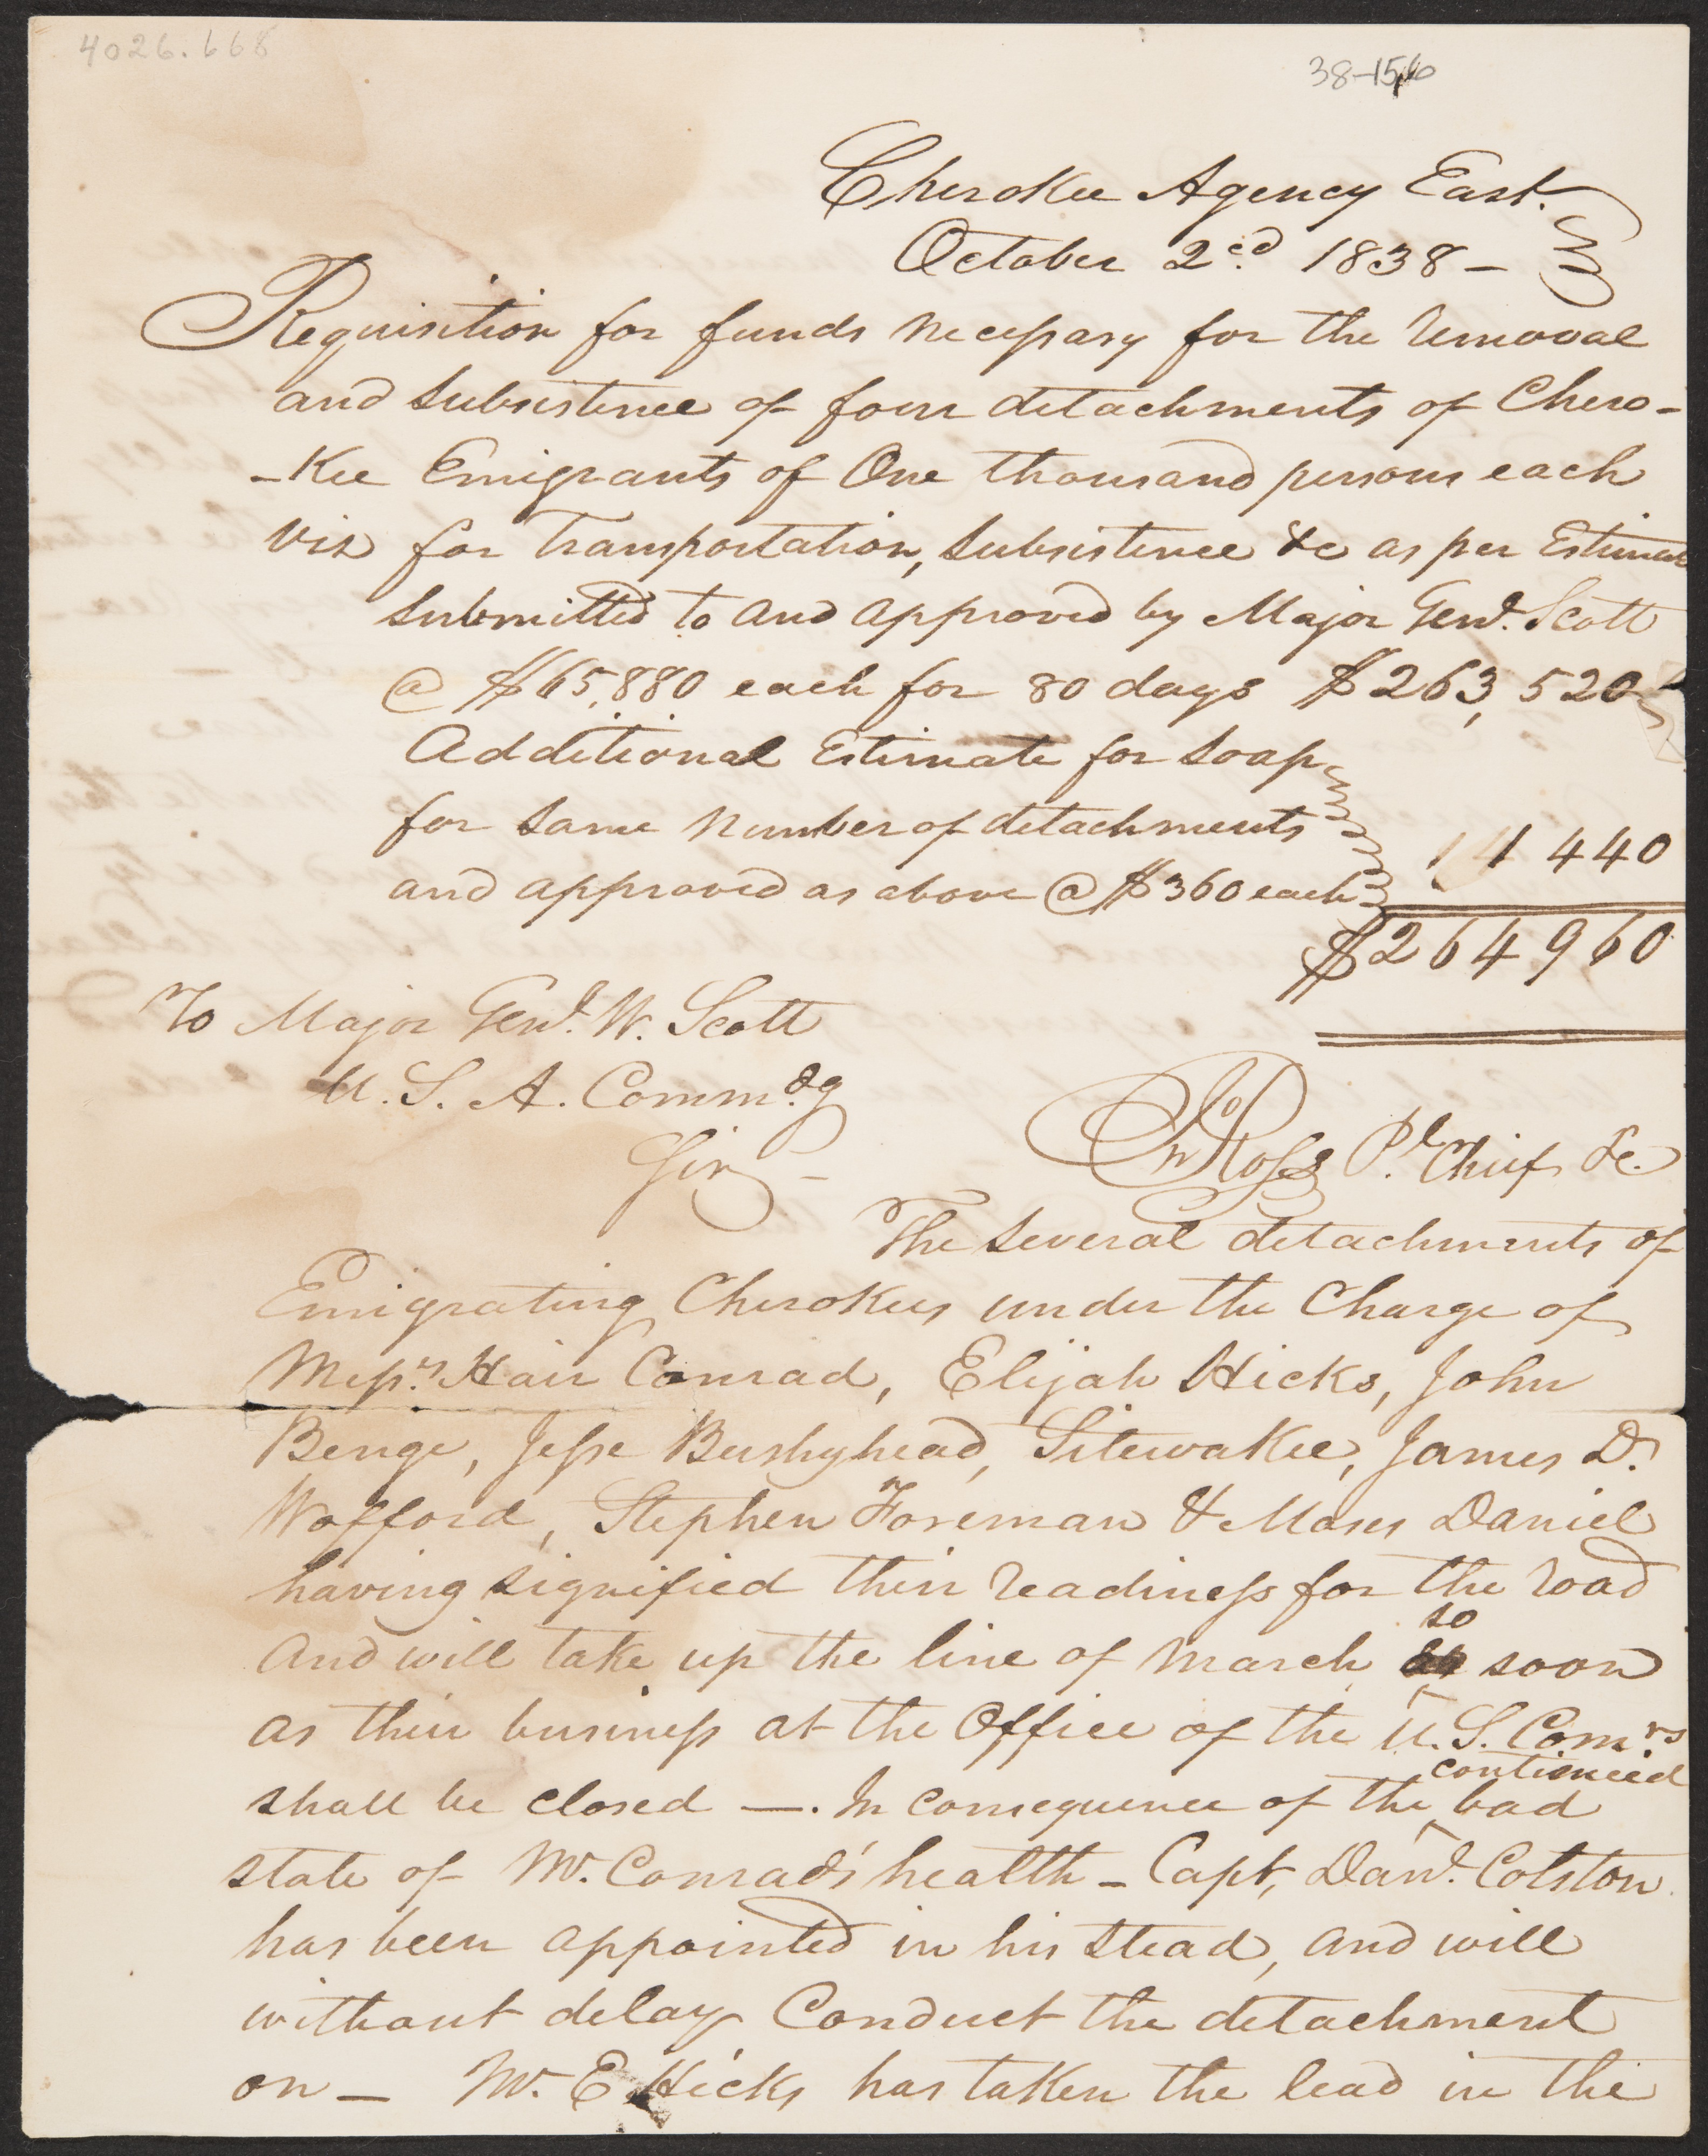 4026.668
38-156
Cherokee Agency East.
October 2cd 1838 -
Requisition for funds necessary for the removal
and subsistence of four detachments of Chero-
-kee Emigrants of One thousand persons each
viz for Transportation, subsistence &c as per Estimate
submitted to and approved by Major Genl. Scott
@ $65,880 each for 80 days $263,520
Additional Estimate for soap
for same number of detachments
and approved as above @ $360 each
1 440
$264960
To Major Genl. W. Scott
U. S. A. Commdg.
Sir -
Jno Ross Pl. Chief &c.
The several detachments of
Emigrating Cherokees under the Charge of
Messrs. Hair Conrad, Elijah Hicks, John
Benge, Jesse Bushyhead, Sitewakee, James D.
Wofford, Stephen Foreman & Moses Daniel
having signified their readiness for the road
and will take up the line of march so soon
as their business at the Office of the U.S. Comrs.
shall be closed —. In consequence of the continued bad
state of Mr. Conrad's health - Capt, Danl. Colston
has been appointed in his stead, and will
without delay Conduct the detachment
on — Mr. E Hicks has taken the lead in the